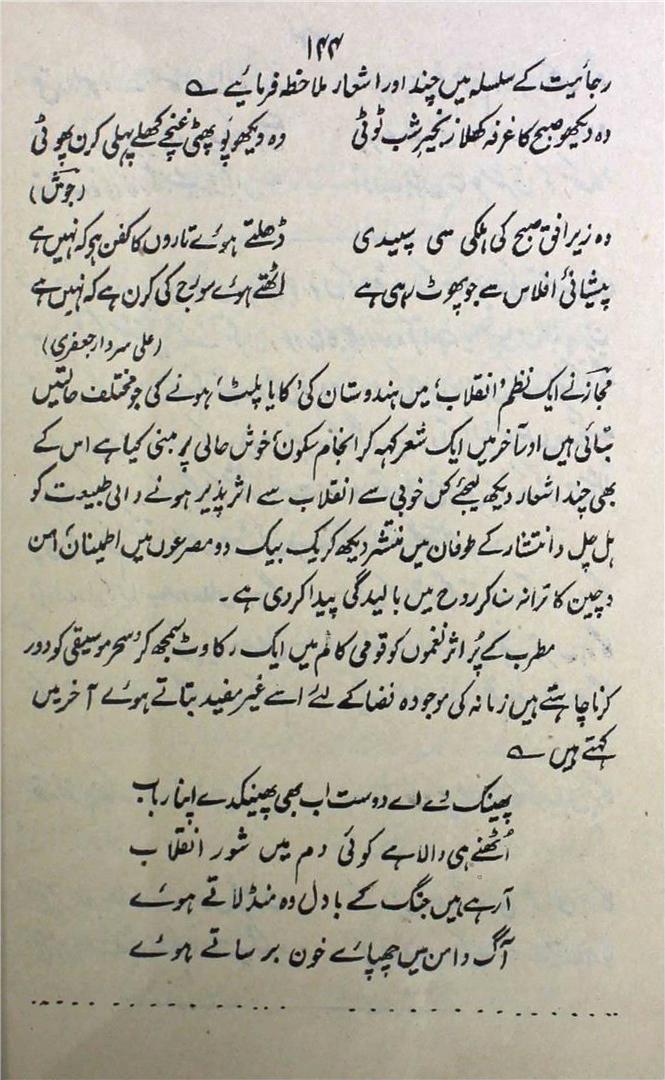 ۱۴۴
رجائیت کے سلسلہ میں چند اور اشعار ملاحظہ فرمائیے ؎
وہ دیکھو صبح کا غرفہ کھلا زنجیرِ شب ٹوٹی وہ دیکھو پَو پھٹی غنچے کھلے پہلی کرن پھوٹی
(جوش)
وہ زیر افق صبح کی ہلکی سی سپیدی ڈھلتے ہوئے تاروں کا کفن ہو کہ نہیں ہے
پیشانیٔ افلاس سے جو پھوٹ رہی ہے اٹھتے ہوئے سورج کی کرن ہے کہ نہیں ہے
(علی سردار جعفری)
مجاز نے ایک نظم ’انقلاب‘ میں ہندوستان کی ’کایا پلٹ‘ ہونے کی جو مختلف حالتیں
بتائی ہیں اور آخر میں ایک شعر کہہ کر انجام سکون، خوش حالی پر مبنی کیا ہے اس کے
بھی چند اشعار دیکھ لیجئے کس خوبی سے انقلاب سے اثر پذیر ہونے والی طبیعت کو
ہل چل و انتشار کے طوفان میں منتشر دیکھ کر یک بیک دو مصرعوں میں اطمینان، امن
و چین کا ترانہ سنا کر روح میں بالیدگی پیدا کر دی ہے۔
مطرب کے پُر اثر نغموں کو قومی کام میں ایک رکاوٹ سمجھ کر، سحر موسیقی کو دور
کرنا چاہتے ہیں زمانہ کی موجودہ فضا کے لئے اسے غیر مفید بتاتے ہوئے آخر میں
کہتے ہیں ؎
پھینک دے اے دوست اب بھی پھینکدے اپنا رباب
اُٹھنے ہی والا ہے کوئی دم میں شور انقلاب
آرہے ہیں جنگ کے بادل وہ منڈلاتے ہوئے
آگ دامن میں چھپائے خون برساتے ہوئے